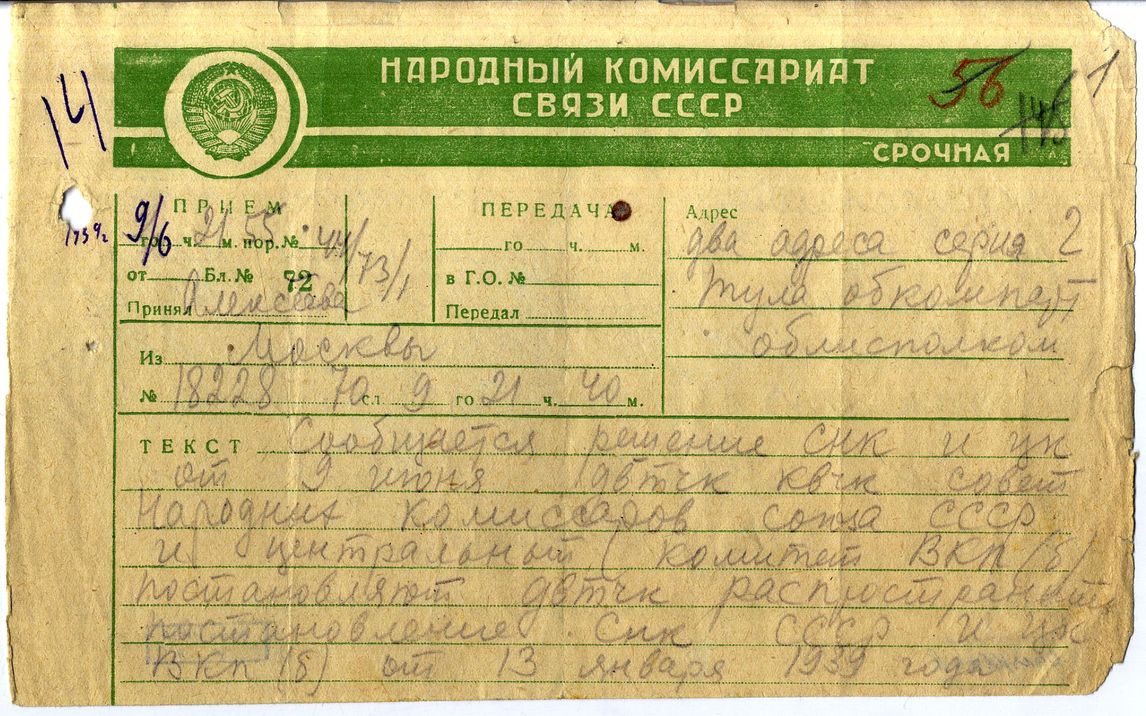 НАРОДНЫЙ КОМИССАРИАТ
СВЯЗИ СССР
СРОЧНАЯ
14
56
1
1939г
ПРИЕМ
9/6 го ч. 21 55 м. пор. №
от Бл. № 72
73/1
Принял
Из Москвы
№ 18228 70 сл 9 го 21 ч. 40 м.
ПЕРЕДАЧА
го ч. м.
в Г.О. №
Передал
Адрес
два адреса серия 2
Тула обкомпарт
облисполком
ТЕКСТ Сообщается решение СНК и цк
от 9 июня двтчк квчк совет
народних комиссаров союза СССР
и центральный комитет ВКП (б)
постановляют двтчк распространить
постановление СНК СССР и цк
ВКП (б) от 13 января 1939 года